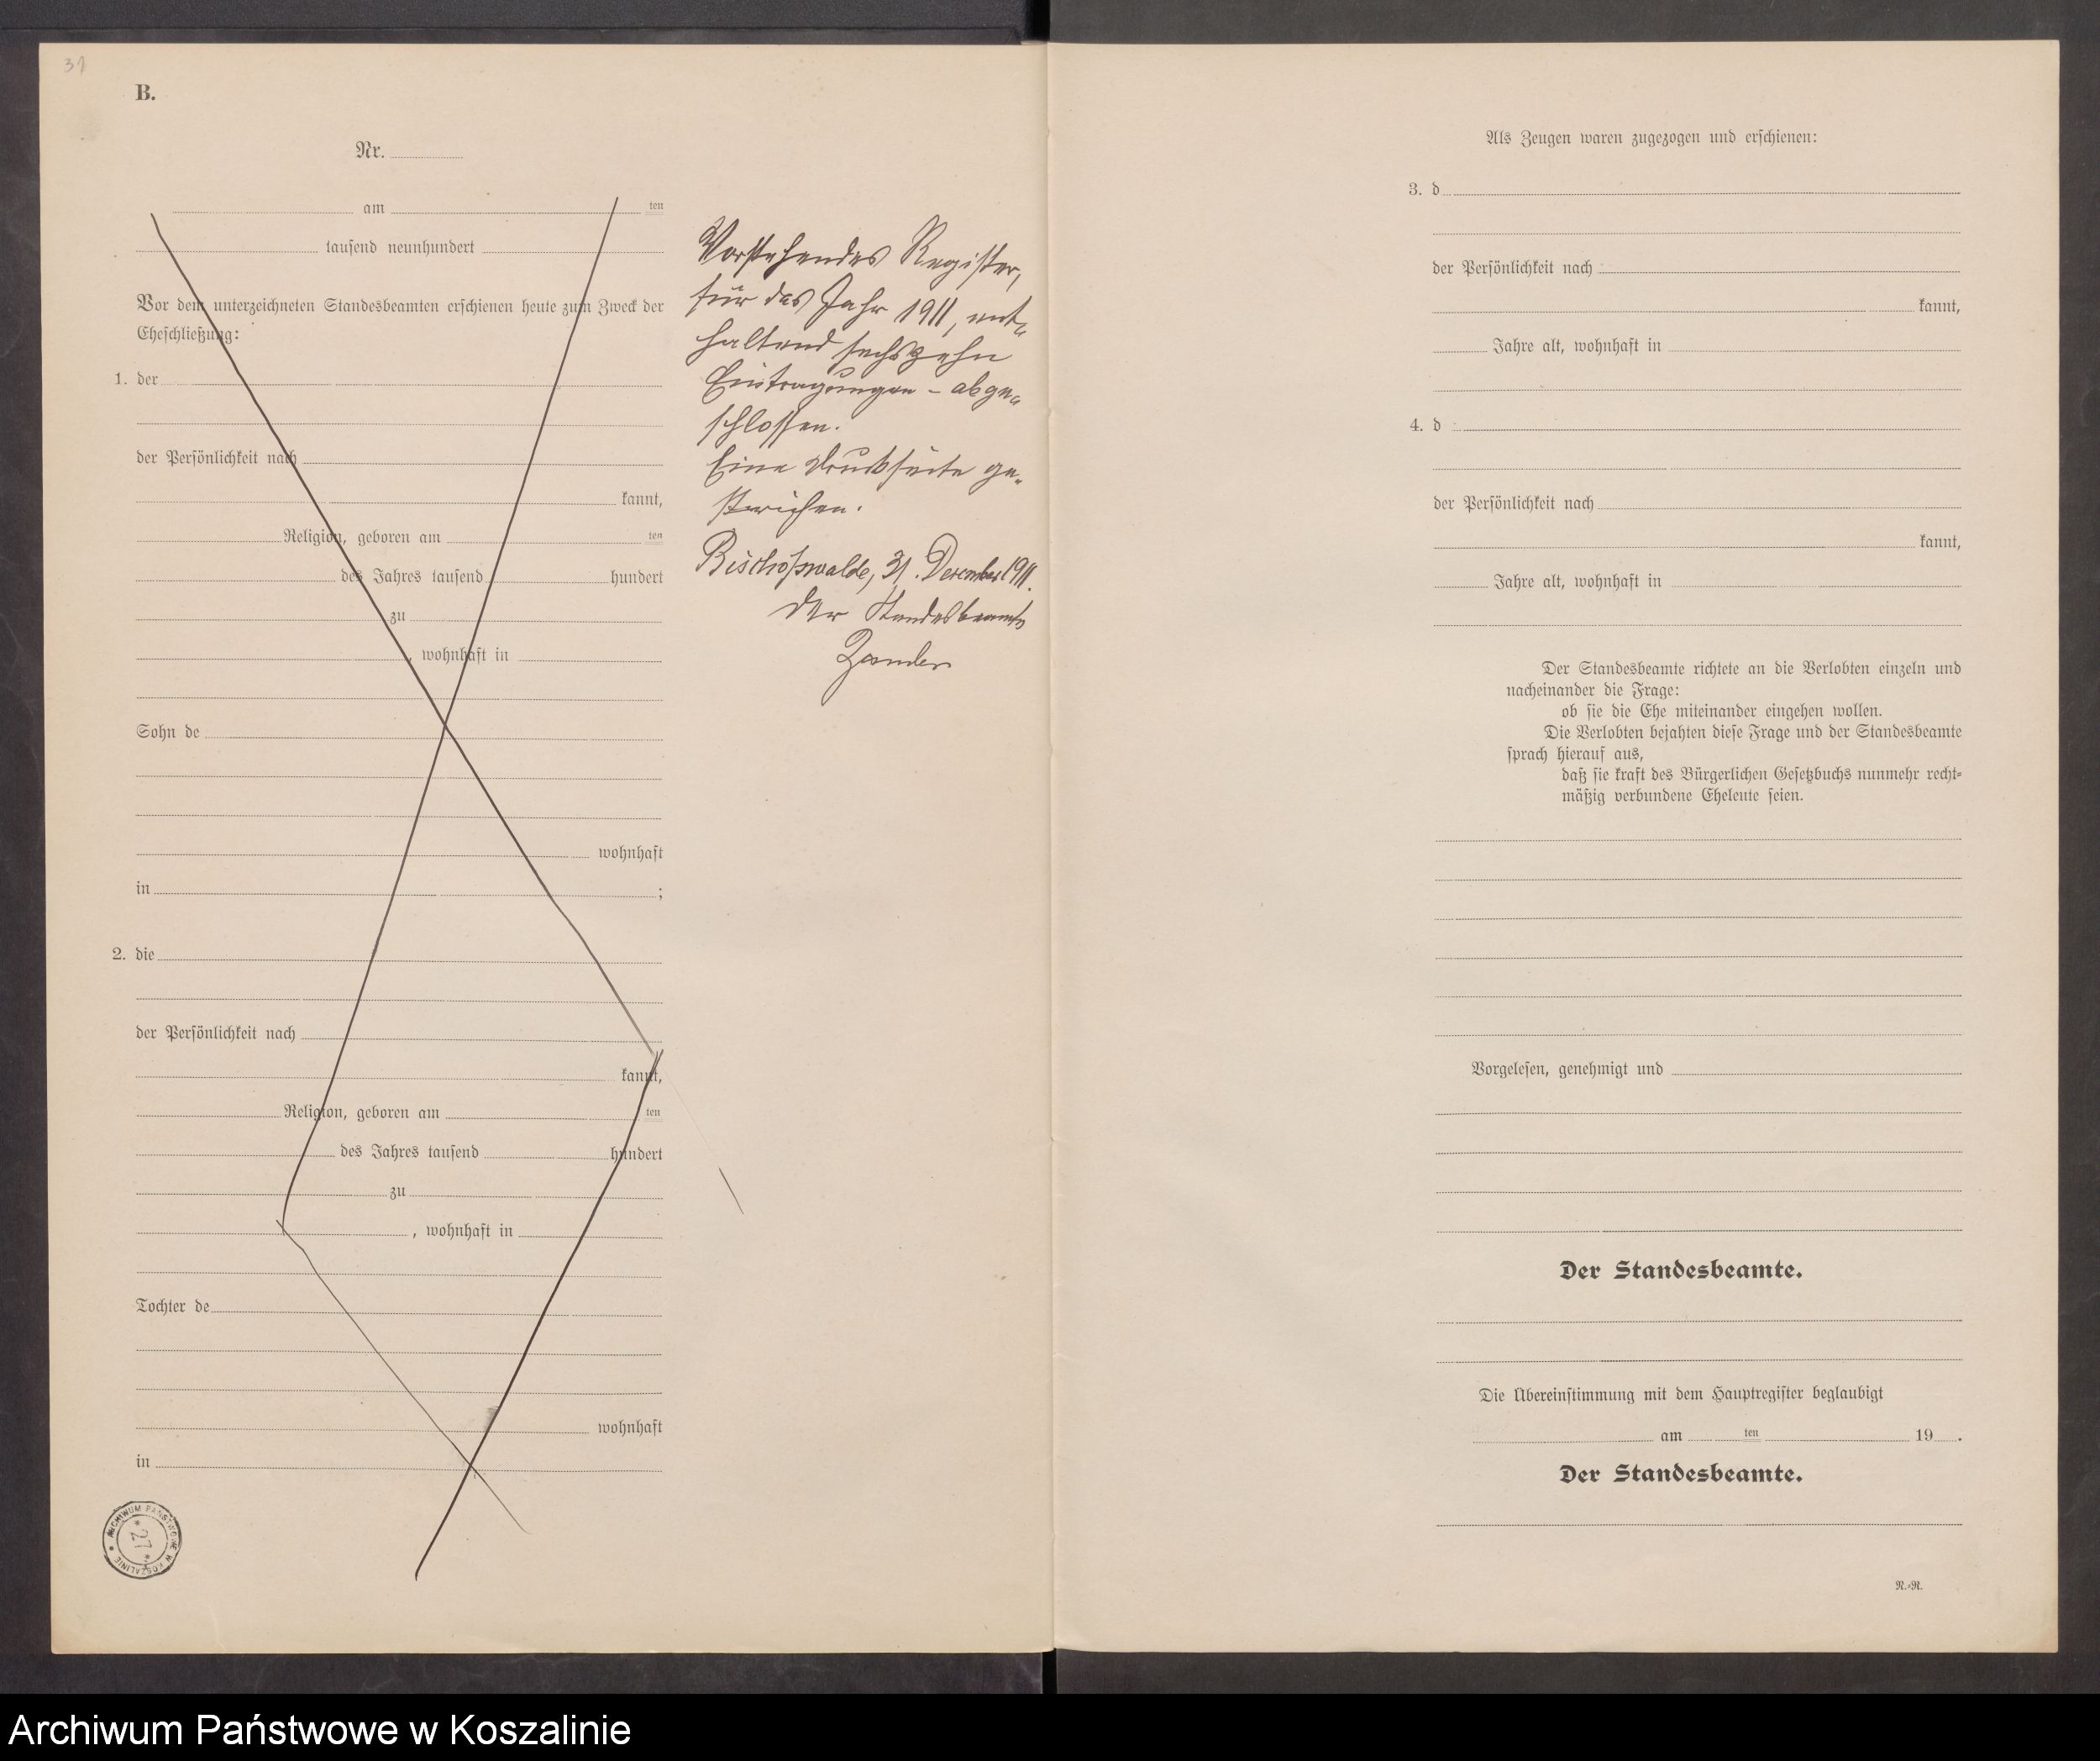 31
B.
Nr.
am ten
tausend neunhundert
Vor dem unterzeichneten Standesbeamten erschienen heute zum Zweck der
Eheschließung:
1. der
der Persönlichkeit nach
kannt,
Religion, geboren am ten
des Jahres tausend hundert
zu
, wohnhaft in
Sohn de
wohnhaft
in ;
2. die
der Persönlichkeit nach
kannt,
Religion, geboren am ten
des Jahres tausend hundert
zu
, wohnhaft in
Tochter de
wohnhaft
in
Vorstehendes Register,
für das Jahr 1911, ent-
haltend sechszehn
Eintragungen - abge-
schlossen.
Eine Druckseite ge-
strichen.
Bischofswalde, 31. Dezember 1911.
Der Standesbeamte
Zander
ARCHIWUM PAŃSTWOWE W KOSZALINIE
* 27 *
Als Zeugen waren zugezogen und erschienen:
3. d
der Persönlichkeit nach
kannt,
Jahre alt, wohnhaft in
4. d
der Persönlichkeit nach
kannt,
Jahre alt, wohnhaft in
Der Standesbeamte richtete an die Verlobten einzeln und
nacheinander die Frage:
ob sie die Ehe miteinander eingehen wollen.
Die Verlobten bejahten diese Frage und der Standesbeamte
sprach hierauf aus,
daß sie kraft des Bürgerlichen Gesetzbuchs nunmehr recht-
mäßig verbundene Eheleute seien.
Vorgelesen, genehmigt und
Der Standesbeamte.
Die Übereinstimmung mit dem Hauptregister beglaubigt
am ten 19 .
Der Standesbeamte.
N.-R.
Archiwum Państwowe w Koszalinie